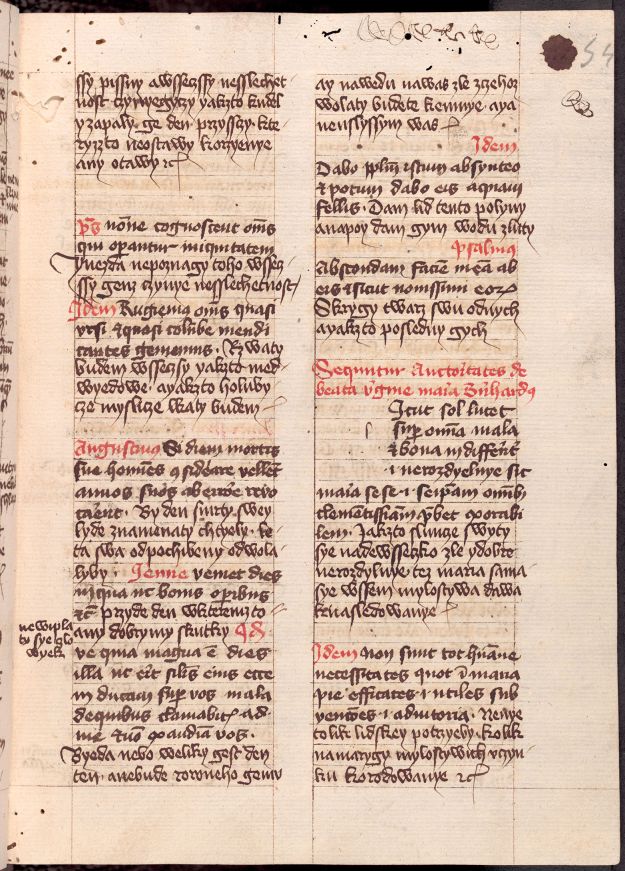 ssy pissny a wssczsy nesslechet
nost czynyegyczy yakzto kudel
y zapaly. ge den przysszy. kte
ryzto neostawy korzyenye
any otawy
Ps̄ nōne cognoscent om̄s
qui opantur iniquitatem
y nezda nepoznagy toho wssicz
ssy genz czynye nesslechetnost
Idem Rugiem9 om̄s quasi
vrsi et quasi columbe medi
tantes gemem9. Rzwaty
budem wssiczsy yakzto ned
wyedowe. a yakzto holuby
cze myslicze lkaty budem
Augustinus Si diem mortis
sue homines 9siderare vellent
animos suos ab errore revo
carent. By den smrty swey
lyde znamenaty chtyely. te
ta swa od pochibeny odwola
lyby. Jenne veniet dies
in qua ut bonis opibus
etc̄ przyde den w kterenzto
any dobrymy skutky Id
newipla
ty sye zlo
wyek
ve quia magna ē dies
illa nec erit silis eius ecce
inducam sup vos mala
de quibus clamabit ad
me et nō exaudiā vos.
Byeda nebo weliky gest den
ten. a nebude rowneho gemu
54
ay nawedu na was zle z gehoz
wolaty budete ke mnye. a ya
neuslyssym was
Idem
Dabo pplm istum absynteo
et potum dabo eis aquam
fellis. Dam lid tento polyny
a napoy dam gym wodu zluty
Psalmus
Abscondam faciē meā ab
eis et sicut nouissimi eorz
Skrygy twarz swu od nych
a yakzto posledny gych
Sequntur Auctoritates de
beata vgine maria Bnhardus
Sicut sol lucet
sup omnia mala
et bona indifferēt
i nerozdyelnye sic
maria sese i seipam omnib
clementissiam p̄bet exorabi
lem. Jakzto slunce swyty
sye nadewsseczko zle y dobre
nerozdylnye tez maria sama
sye wssem mylostywa dawa
k nasledowanye
Idem non sunt tot humane
necessitates quot i maria
pie efficates i utiles sub
venciōes i adiutoria. Nenye
tolik lidskey potrzyeby. kolik
na marygy mylostywich vczyn
kuw k orodowanye